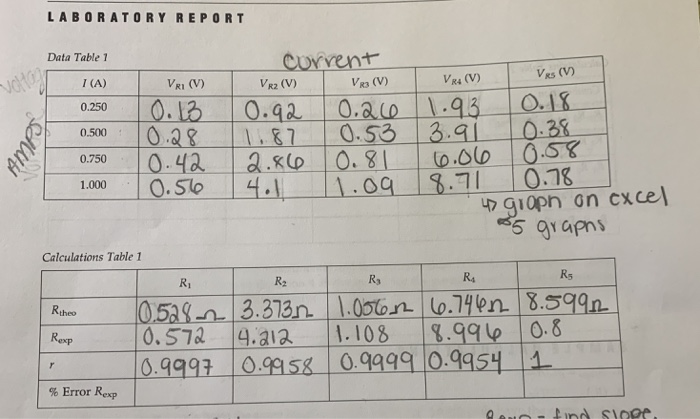 LABORATORY REPORT
Data Table 1
current
AMPS
I (A) VR1 (V) VR2 (V) VR3 (V) VR4 (V) VR5 (V)
0.250 0.13 0.92 0.26 1.93 0.18
0.500 0.28 1.87 0.53 3.91 0.38
0.750 0.42 2.86 0.81 6.06 0.58
1.000 0.56 4.1 1.09 8.71 0.78
↳ graph on excel
5 graphs
Calculations Table 1
R1 R2 R3 R4 R5
Rtheo 0.528Ω 3.373Ω 1.056Ω 6.746Ω 8.599Ω
Rexp 0.572 4.212 1.108 8.996 0.8
r 0.9997 0.9958 0.9999 0.9954 1
% Error Rexp
- find slope.